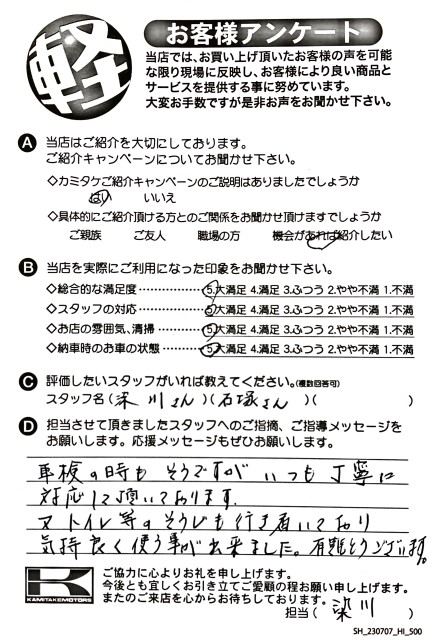 軽
お客様アンケート
当店では、お買い上げ頂いたお客様の声を可能
な限り現場に反映し、お客様により良い商品と
サービスを提供する事に努めています。
大変お手数ですが是非お声をお聞かせ下さい。
A 当店はご紹介を大切にしております。
ご紹介キャンペーンについてお聞かせ下さい。
◇カミタケご紹介キャンペーンのご説明はありましたでしょうか
はい いいえ
◇具体的にご紹介頂ける方とのご関係をお聞かせ頂けますでしょうか
ご親族 ご友人 職場の方 機会があれば紹介したい
B 当店を実際にご利用になった印象をお聞かせ下さい。
◇総合的な満足度 ················ 5.大満足 4.満足 3.ふつう 2.やや不満 1.不満
◇スタッフの対応 ················ 5.大満足 4.満足 3.ふつう 2.やや不満 1.不満
◇お店の雰囲気、清掃 ············ 5.大満足 4.満足 3.ふつう 2.やや不満 1.不満
◇納車時のお車の状態 ············ 5.大満足 4.満足 3.ふつう 2.やや不満 1.不満
C 評価したいスタッフがいれば教えてください。(複数回答可)
スタッフ名(深川さん)(石塚さん)( )
D 担当させて頂きましたスタッフへのご指摘、ご指導メッセージを
お願いします。応援メッセージもぜひお願いします。
車検の時も そうですが いつも 丁寧に
対応して頂いております。
又 トイレ等のそうじも行き届いており
気持良く使う事が出来ました。有難とうございます。
K
KAMITAKEMOTORS
ご協力に心よりお礼を申し上げます。
今後とも宜しくお引き立てご愛顧の程お願い申し上げます。
またのご来店を心からお待ちしております。
担当( 深川 )
SH_230707_HI_500